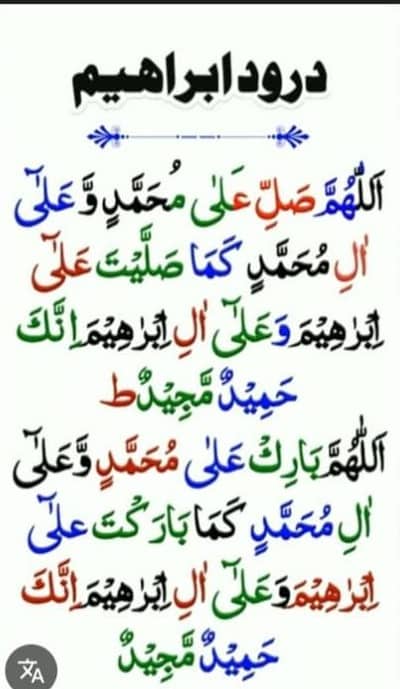 درود ابراهیم
اَللّٰهُمَّ صَلِّ عَلٰی مُحَمَّدٍ وَّ عَلٰٓی
اٰلِ مُحَمَّدٍ كَمَا صَلَّیْتَ عَلٰٓی
اِبْرٰهِیْمَ وَعَلٰٓی اٰلِ اِبْرٰهِیْمَ اِنَّكَ
حَمِیْدٌ مَّجِیْدٌ ط
اَللّٰهُمَّ بَارِكْ عَلٰی مُحَمَّدٍ وَّعَلٰٓی
اٰلِ مُحَمَّدٍ كَمَا بَارَكْتَ علٰٓی
اِبْرٰهِیْمَ وَعَلٰٓی اٰلِ اِبْرٰهِیْمَ اِنَّكَ
حَمِیْدٌ مَّجِیْدٌ